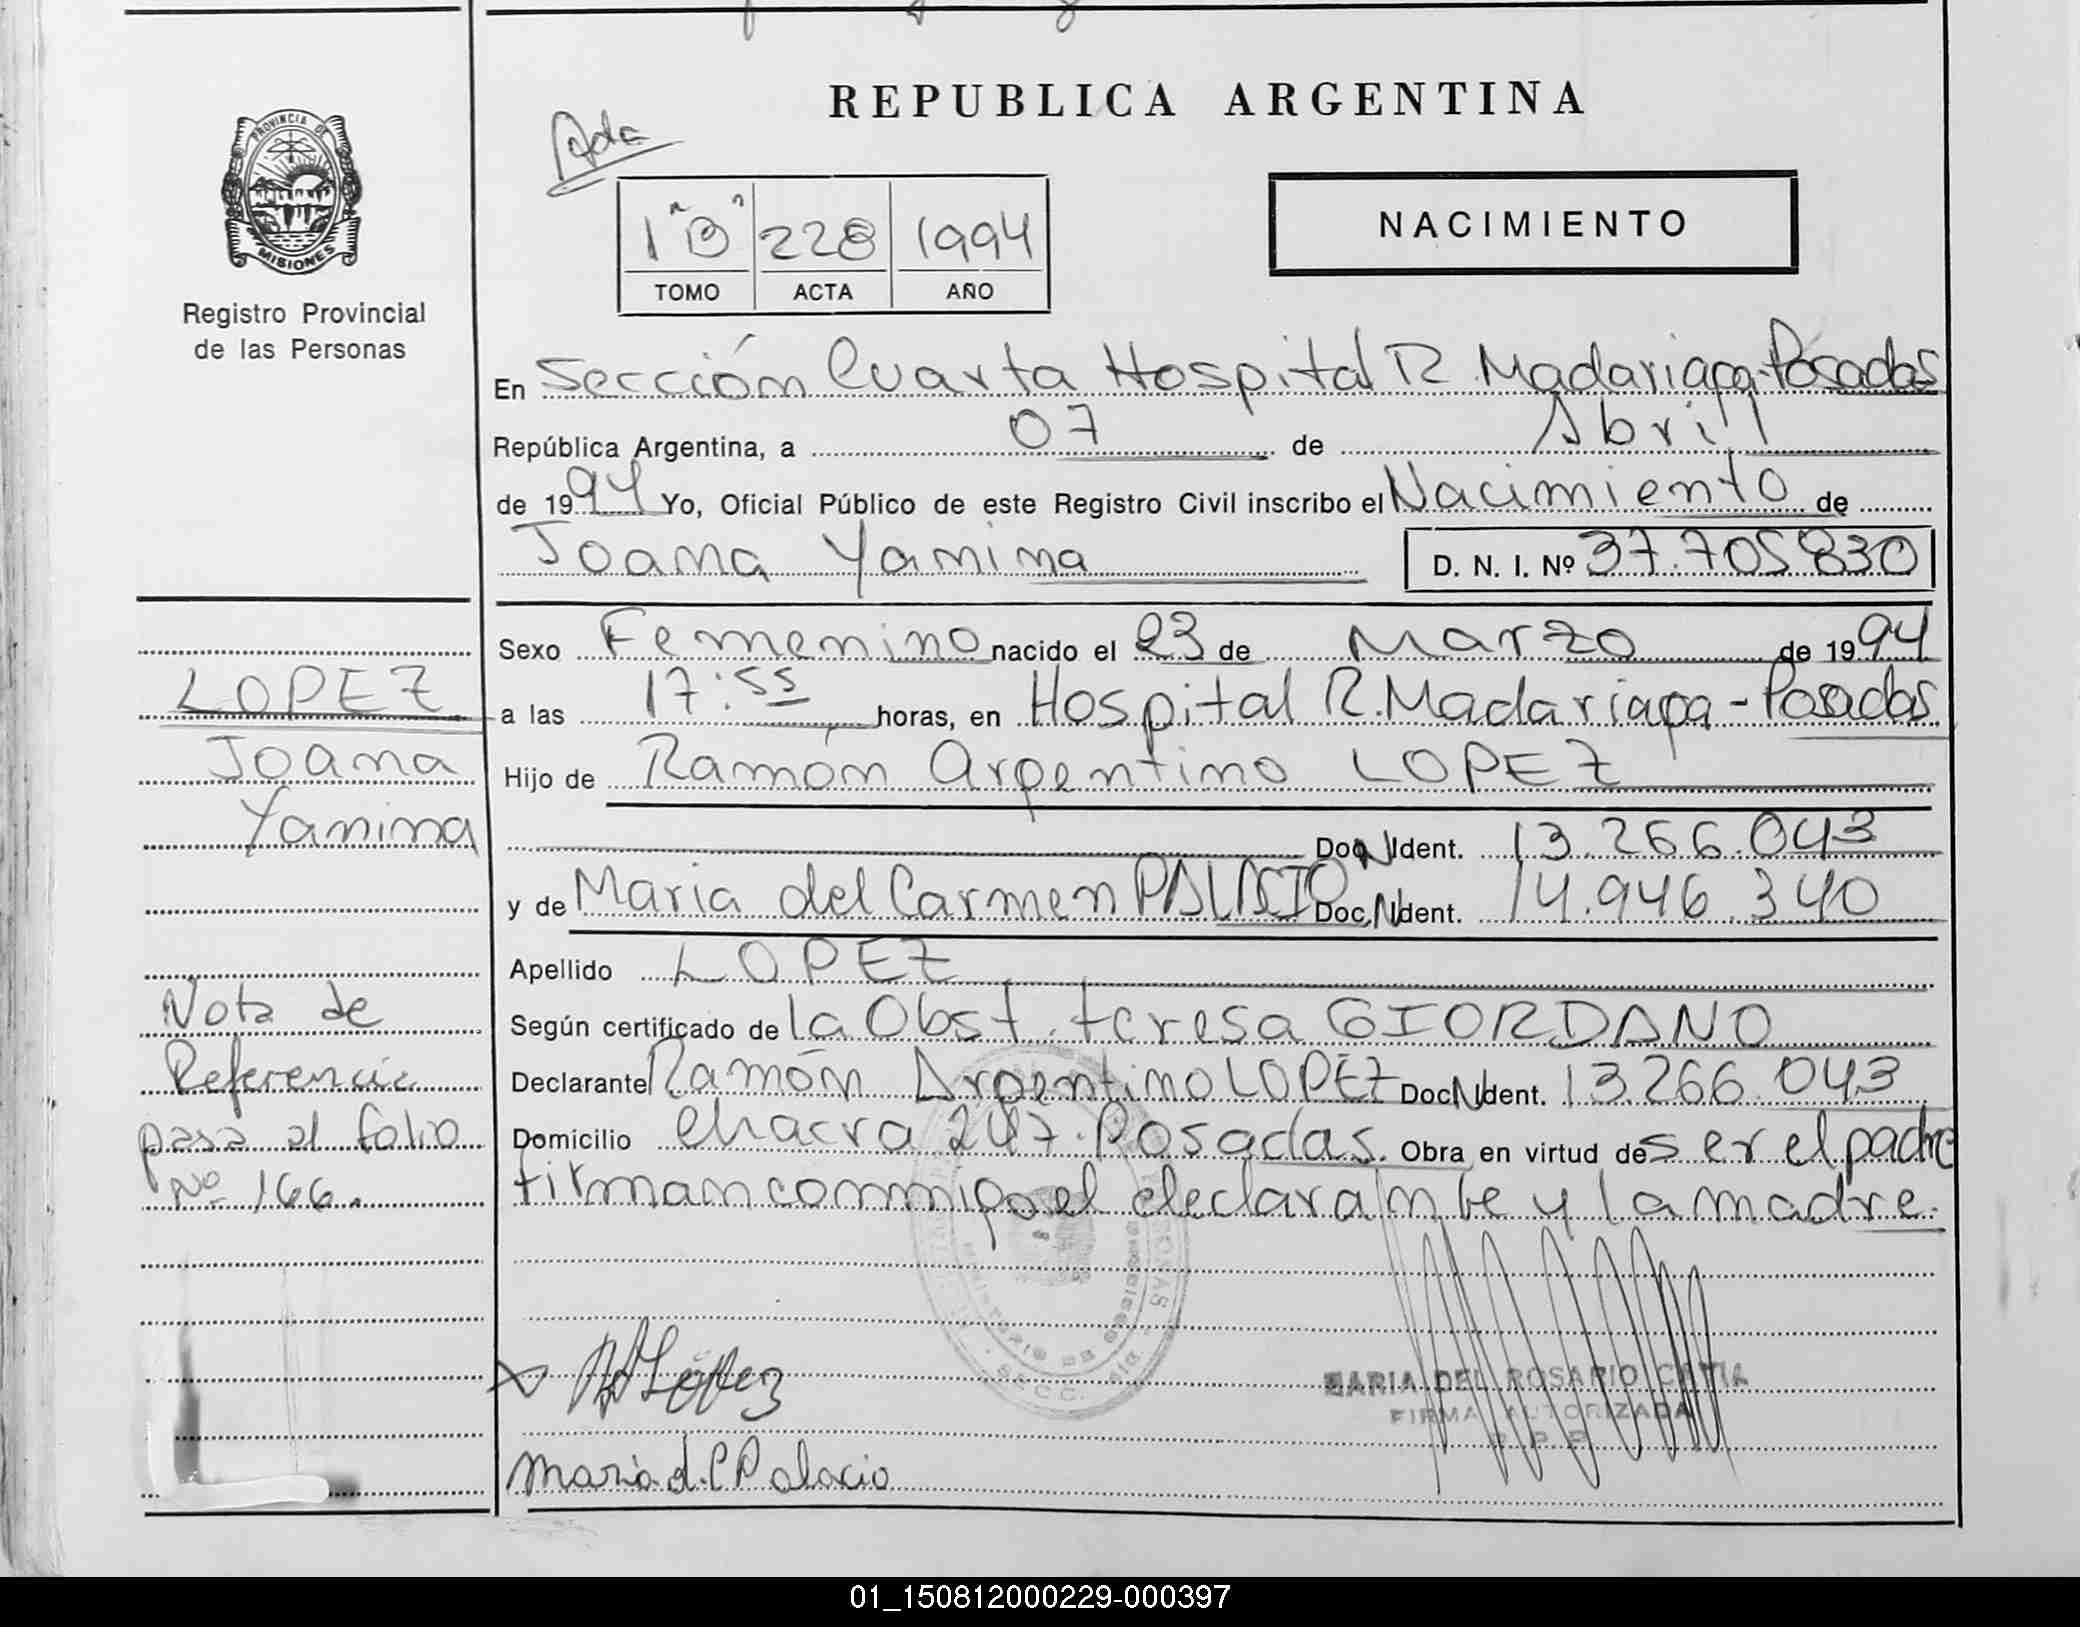 REPUBLICA ARGENTINA
PROVINCIA DE
MISIONES
Registro Provincial
de las Personas
1 "B" 228 1994
TOMO ACTA AÑO
NACIMIENTO
En Sección Cuarta Hospital R. Madariaga-Posadas
República Argentina, a 07 de Abril
de 1994 Yo, Oficial Público de este Registro Civil inscribo el Nacimiento de
Joana Yanina D. N. I. Nº 37.705830
Sexo Femenino nacido el 23 de Marzo de 1994
a las 17:55 horas, en Hospital R. Madariaga - Posadas
Hijo de Ramón Argentino LOPEZ
Doc. N Ident. 13.266.043
y de Maria del Carmen PALACIO Doc. N Ident. 14.946.340
Apellido LOPEZ
Según certificado de la Obst. teresa GIORDANO
Declarante Ramón Argentino LOPEZ Doc. N Ident. 13.266.043
Domicilio chacra 247. Posadas. Obra en virtud de ser el padre
firman conmigo el declarante y la madre.
LOPEZ
Joana
Yanina
Nota de
Referencia
pasa al folio
Nº 166.
López
MARIA DEL ROSARIO
FIRMA AUTORIZADA
Maria d. C Palacio
01_150812000229-000397